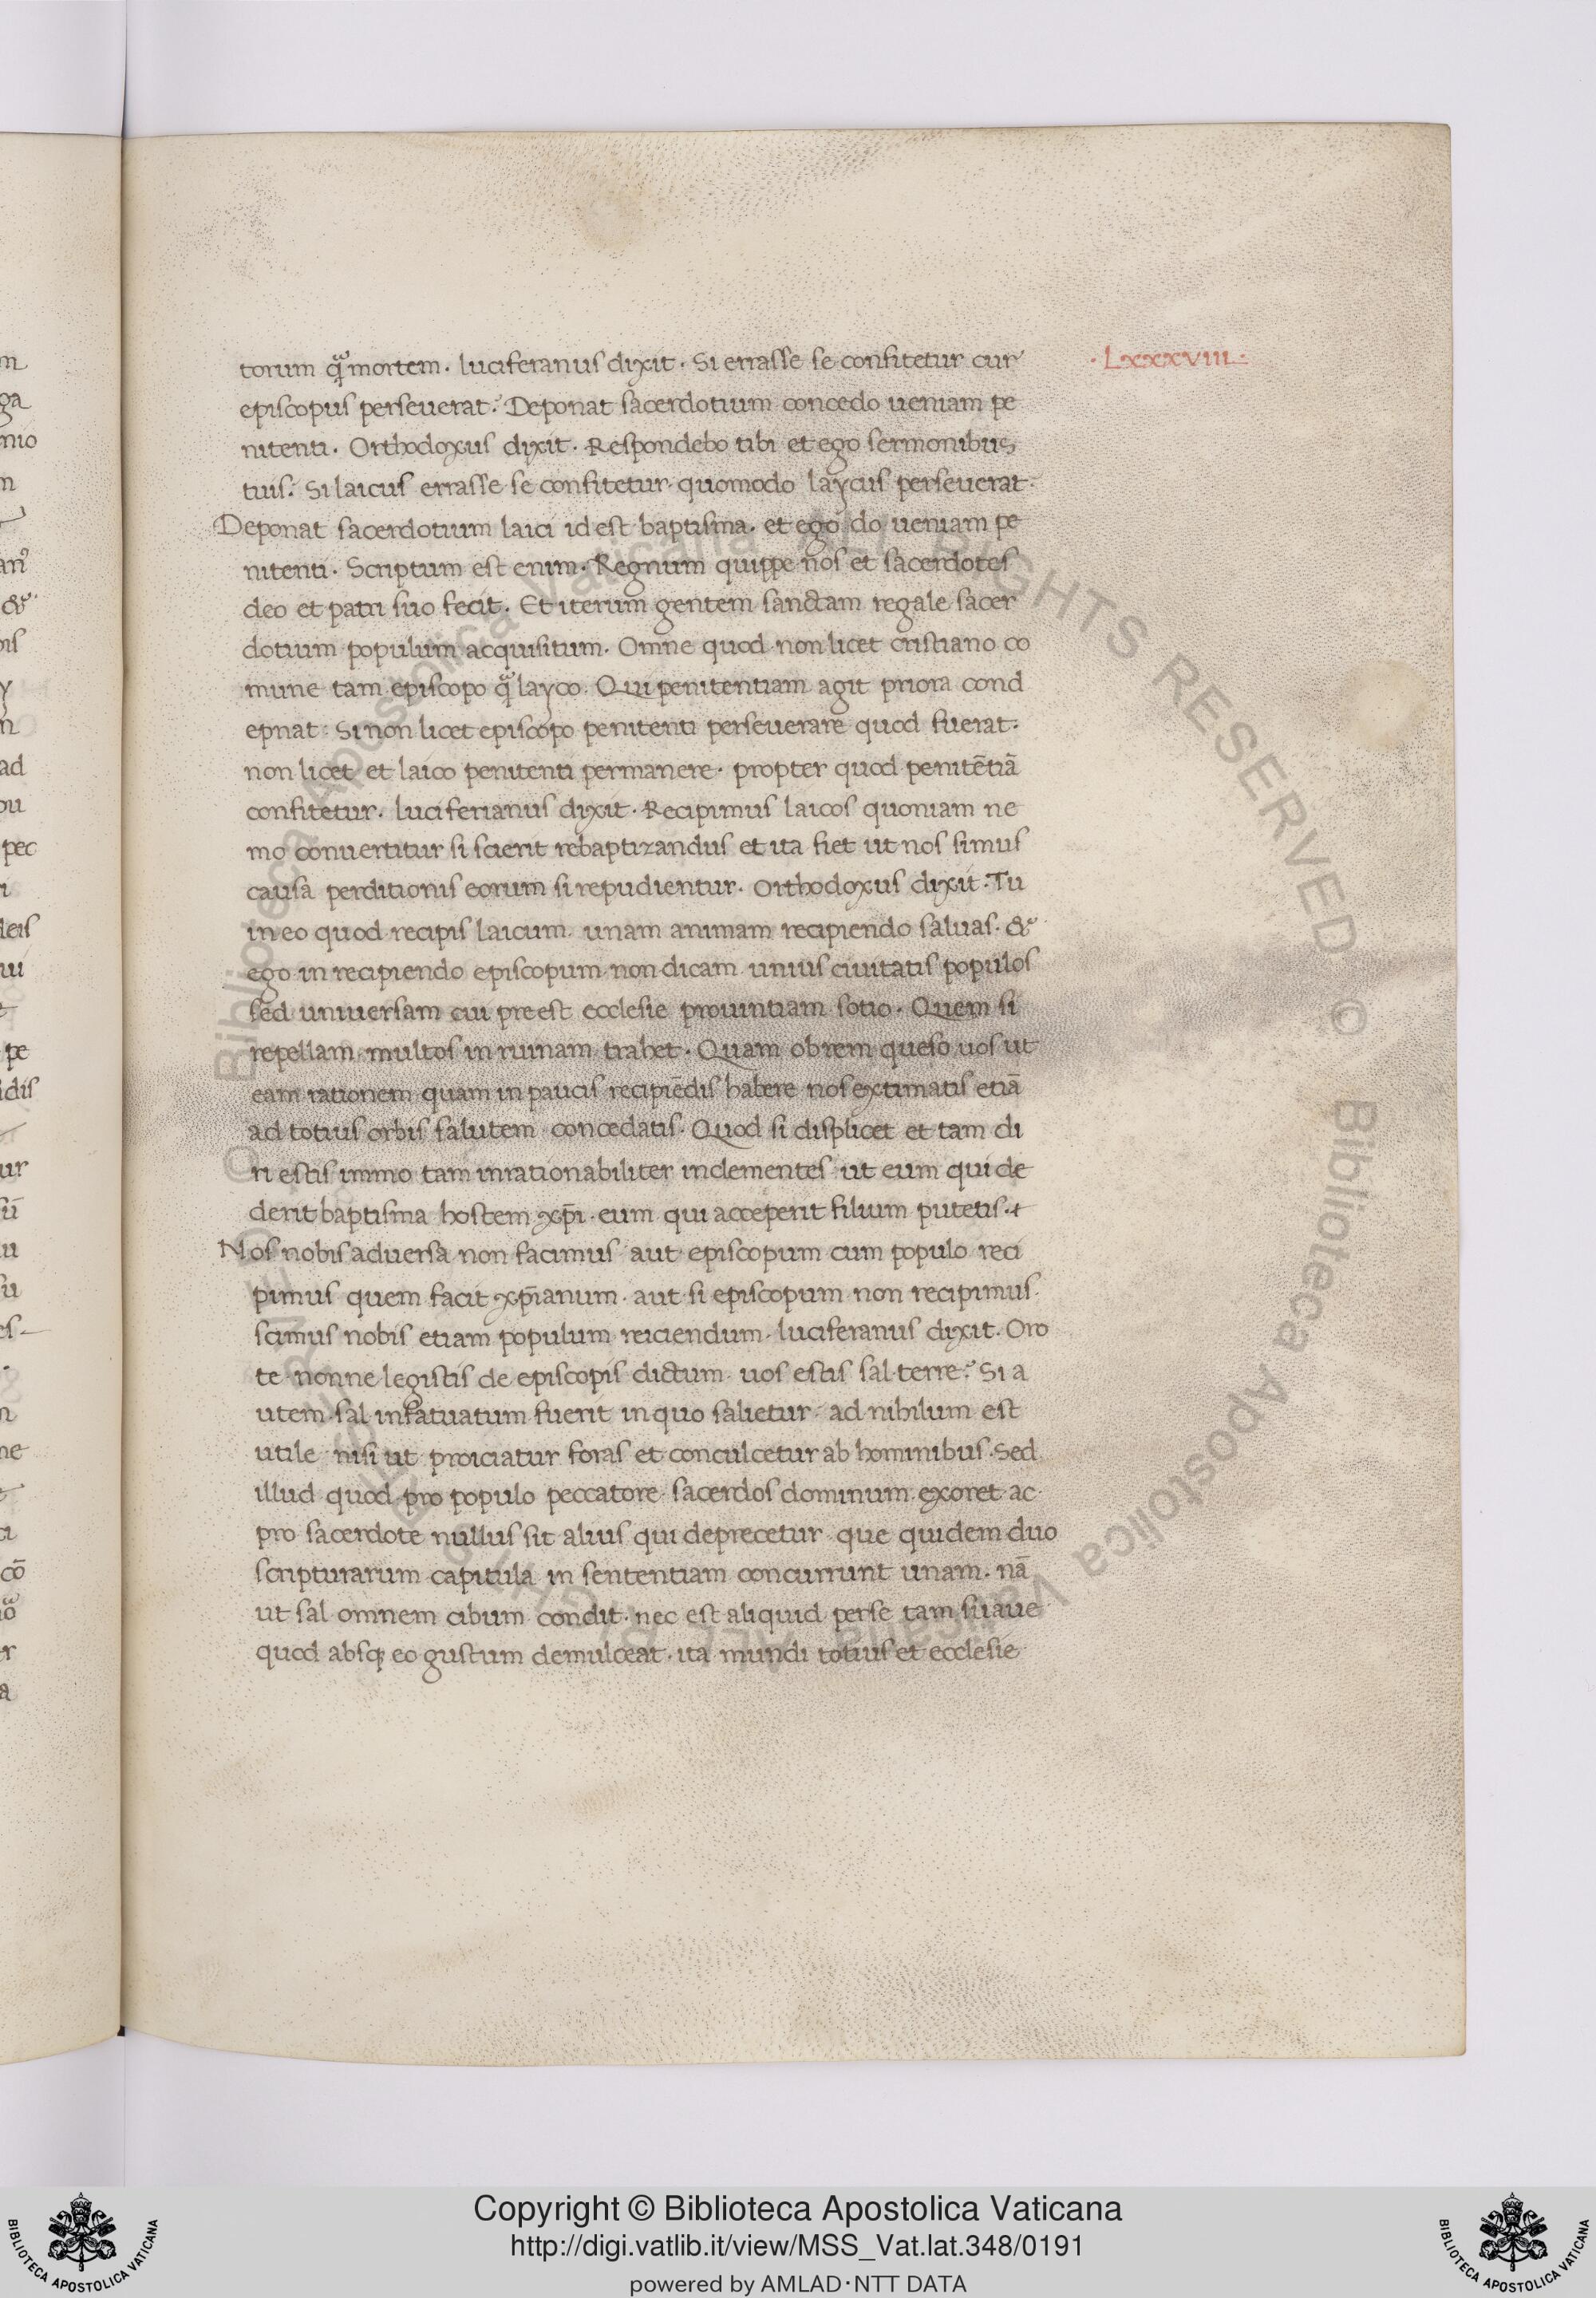 ·Lxxxviii·
torum qͣmortem. luciferanus dixit. Si errasse se confitetur cur
episcopus perseuerat? Deponat sacerdotium concedo ueniam pe
nitenti. Orthodoxus dixit. Respondebo tibi et ego sermonibus
tuis. Si laicus errasse se confitetur quomodo laycus perseuerat.
Deponat sacerdotium laici id est baptisma. et ego do ueniam pe
nitenti. Scriptum est enim. Regnum quippe nos et sacerdotes
deo et patri suo fecit. Et iterum gentem sanctam regale sacer
dotium populum acquisitum. Omne quod non licet cristiano co
mune tam episcopo qͣ layco. Qui penitentiam agit priora cond
epnat. Si non licet episcopo penitenti perseuerare quod fuerat.
non licet et laico penitenti permanere. propter quod penitētiā
confitetur. luciferianus dixit. Recipimus laicos quoniam ne
mo conuertitur si scierit rebaptizandus et ita fiet ut nos simus
causa perditionis eorum si repudientur. Orthodoxus dixit. Tu
in eo quod recipis laicum. unam animam recipiendo saluas. &
ego in recipiendo episcopum non dicam unius ciuitatis populos
sed uniuersam cui preest ecclesie prouintiam sotio. Quem si
repellam multos in ruinam trahet. Quam obrem queso uos ut
eam rationem quam in paucis recipiēdis habere nos extimatis etiā
ad totius orbis salutem concedatis. Quod si displicet et tam di
ri estis immo tam inrationabiliter inclementes ut eum qui de
derit baptisma hostem xp̄i. eum qui acceperit filium putetis.
Nos nobis aduersa non facimus aut episcopum cum populo reci
pimus quem facit xp̄ianum. aut si episcopum non recipimus.
scimus nobis etiam populum reiciendum. luciferanus dixit. Oro
te nonne legistis de episcopis dictum uos estis sal terre? Si a
utem sal infatuatum fuerit in quo salietur. ad nihilum est
utile nisi ut proiciatur foras et conculcetur ab hominibus. Sed
illud quod pro populo peccatore sacerdos dominum exoret ac
pro sacerdote nullus sit alius qui deprecetur que quidem duo
scripturarum capitula in sententiam concurrunt unam. nā
ut sal omnem cibum condit. nec est aliquid perse tam suaue
quod absq; eo gustum demulceat. ita mundi totius et ecclesie
Copyright © Biblioteca Apostolica Vaticana
http://digi.vatlib.it/view/MSS_Vat.lat.348/0191
powered by AMLAD·NTT DATA
BIBLIOTECA APOSTOLICA VATICANA
BIBLIOTECA APOSTOLICA VATICANA